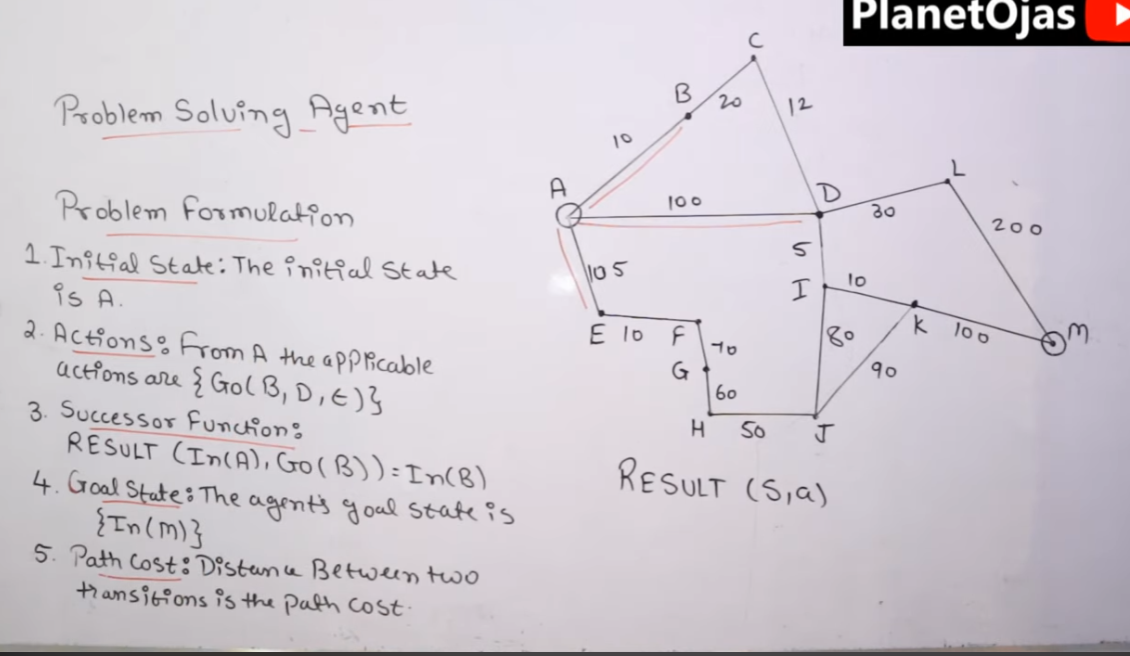 PlanetOjas
Problem Solving Agent
Problem Formulation
1. Initial State: The initial State
is A.
2. Actions: From A the applicable
actions are {Go(B, D, E)}
3. Successor Function:
RESULT (In(A), Go(B)) = In(B)
4. Goal State: The agent's goal state is
{In(M)}
5. Path Cost: Distance Between two
transitions is the path cost.
C
B 20
12
10
A
100
D
30
L
200
105
5
I 10
E 10 F
70
G
60
80
K
100
M
90
H 50 J
RESULT (S,a)